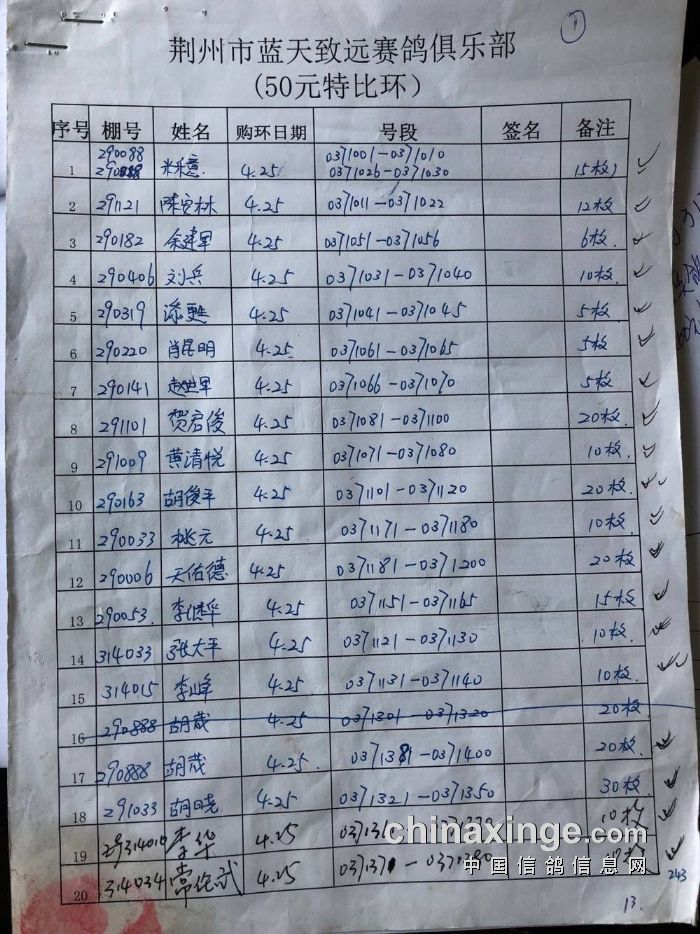 荆州市蓝天致远赛鸽俱乐部
(50元特比环)
序号 棚号 姓名 购环日期 号段 签名 备注
290088 0371001-0371010
1 290888 4.25 0371026-0371030 15枚
2 291121 4.25 0371011-0371022 12枚
3 290182 余建军 4.25 0371051-0371056 6枚.
4 290406 刘兵 4.25 0371031-0371040 10枚.
5 290319 4.25 0371041-0371045 5枚
6 290220 肖昆明 4.25 0371061-0371065 5枚
7 290141 4.25 0371066-0371070 5枚
8 291101 贺启俊 4.25 0371081-0371100 20枚
9 291009 黄清悦 4.25 0371071-0371080 10枚.
10 290163 胡俊平 4.25 0371101-0371120 20枚.
11 290033 桃元 4.25 0371171-0371180 10枚.
12 290006 天佑德 4.25 0371181-0371200 20枚
13 290053. 李继华 4.25 0371151-0371165 15枚
14 314033 张大平 4.25 0371121-0371130 10枚.
15 314015 李峰 4.25 0371131-0371140 10枚.
16 290888 胡茂 4.25 0371301-0371320 20枚
17 290888 胡茂 4.25. 0371381-0371400 20枚.
18 291033 胡晓 4.25 0371321-0371350 30枚.
19 李华 4.25 10枚
20 314034 4.25
chinaxinge.com
中国信鸽信息网
243
13.